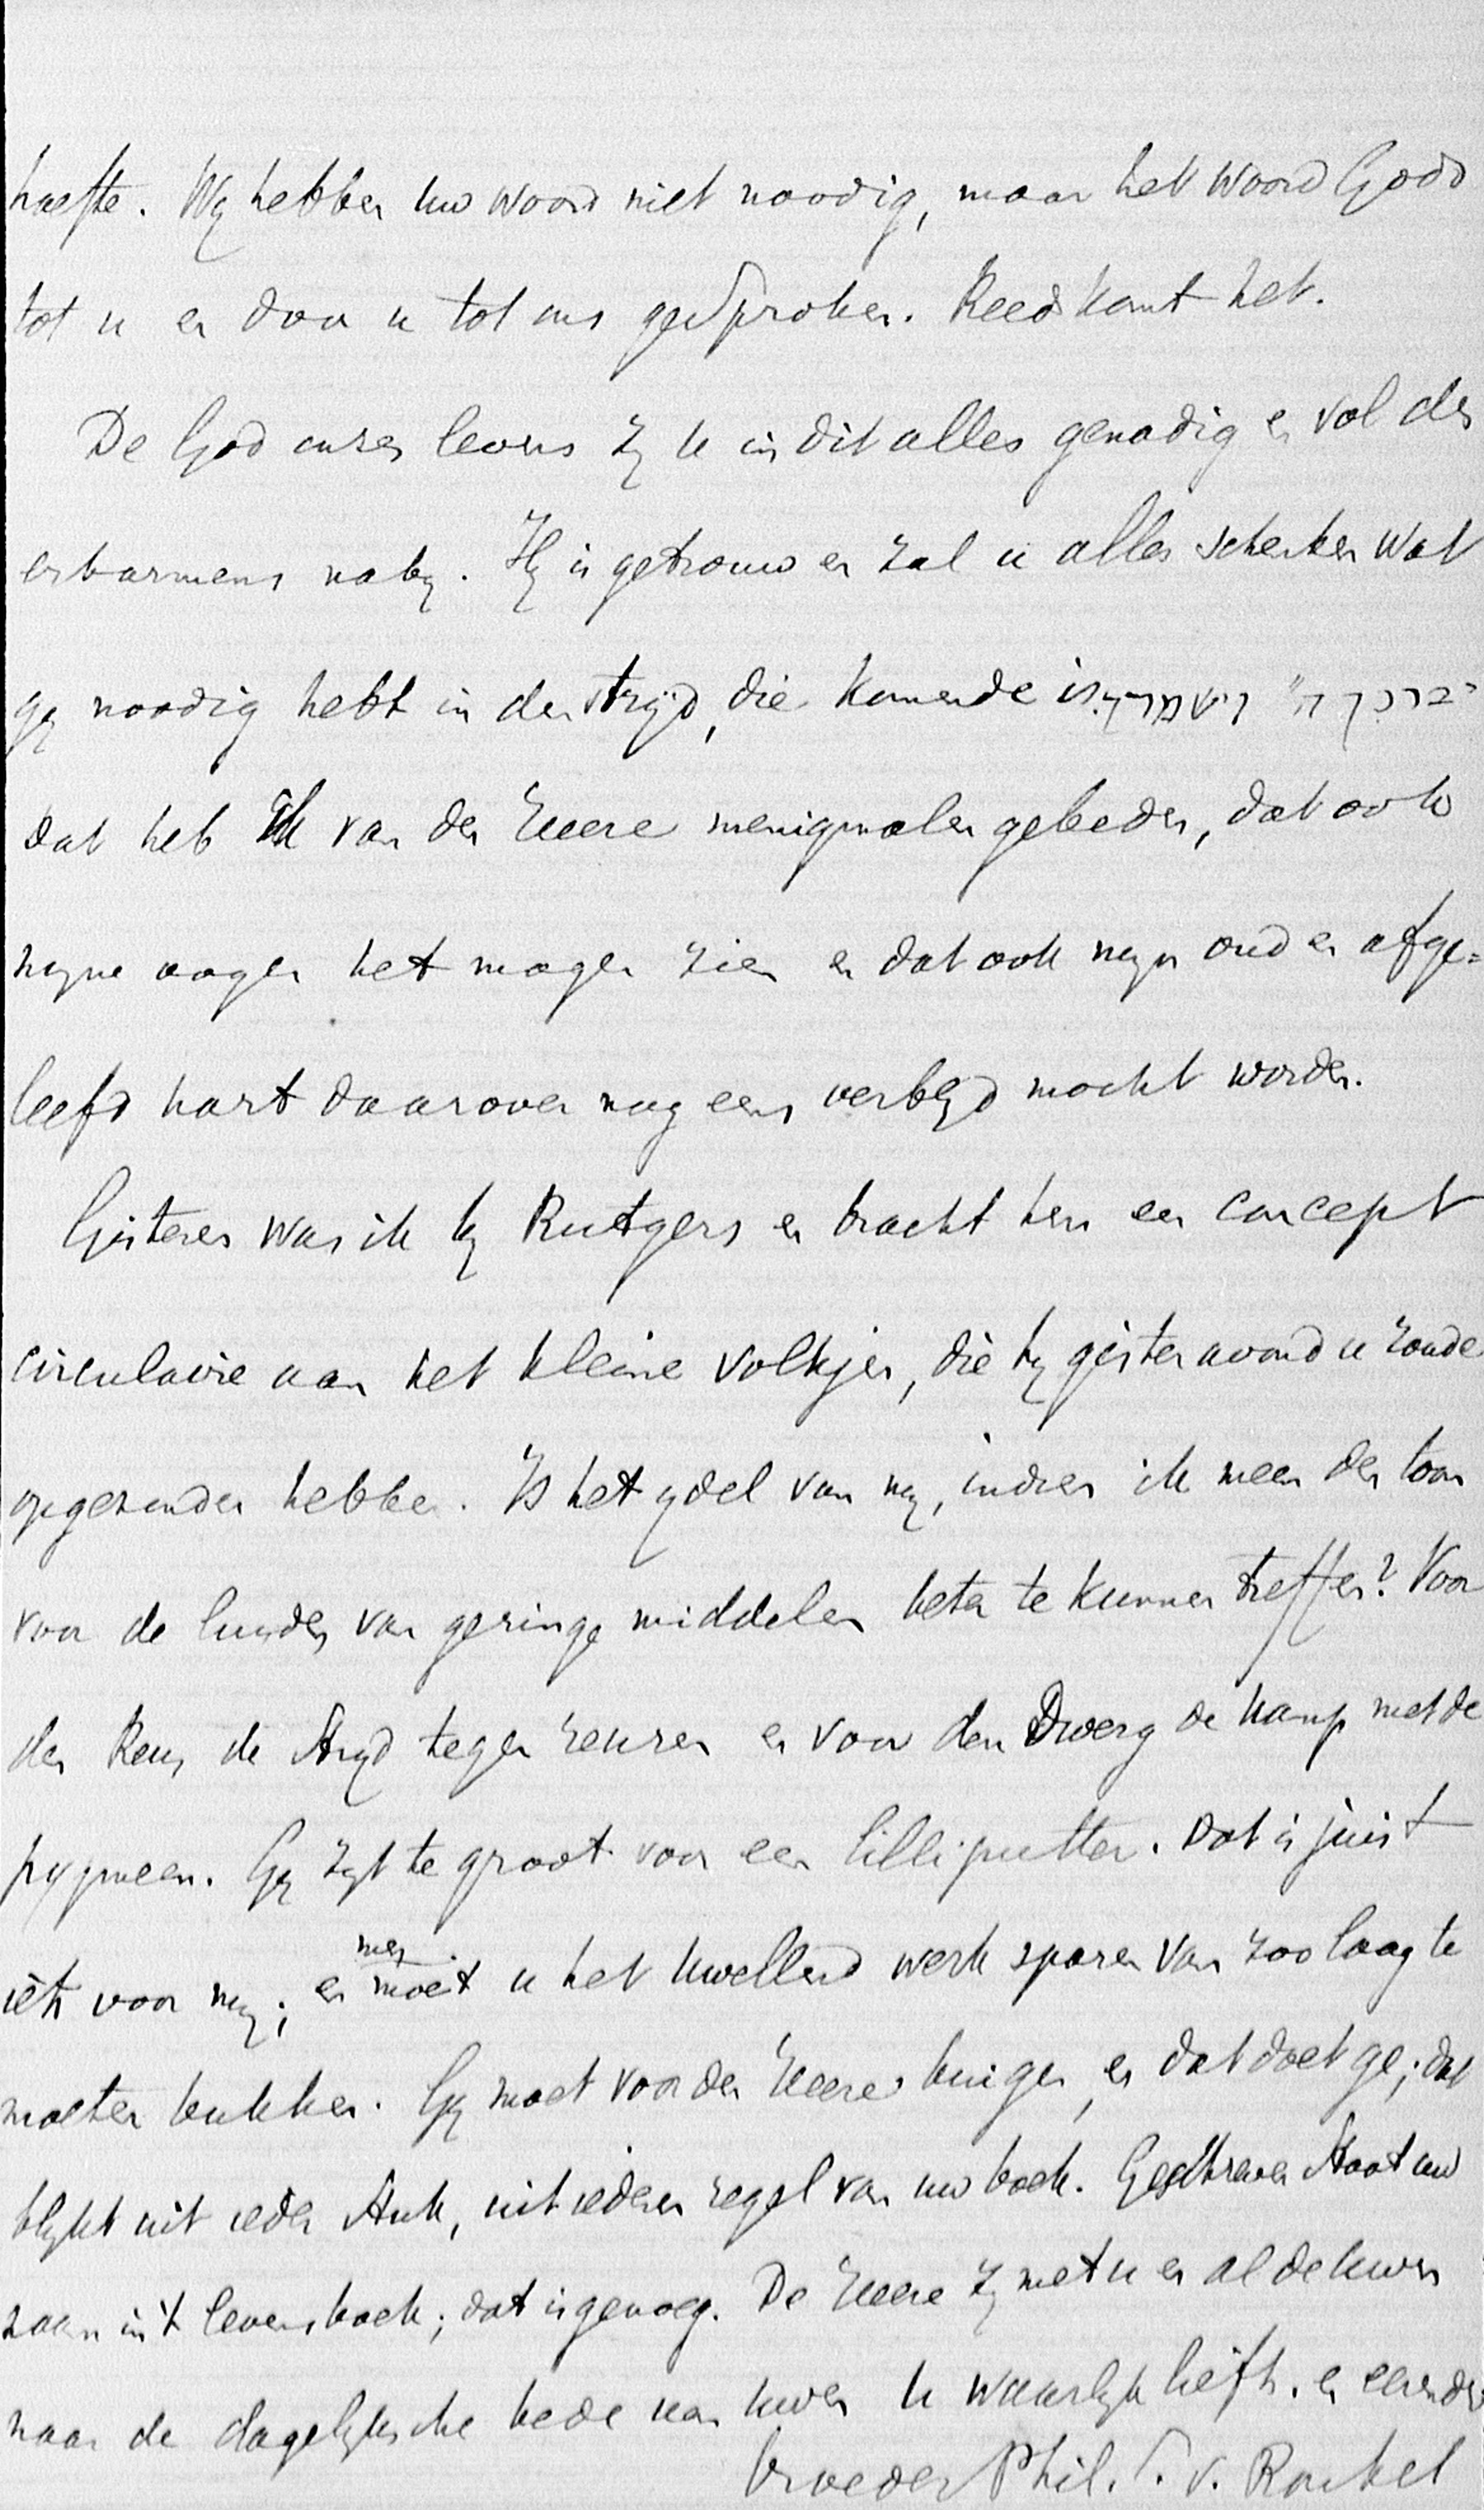 haefte. Wij hebben uw woord niet noodig, maar het Woord Gods
tot u en door u tot ons gesproken. Reeds komt het.
De God onzes levens zij u in dit alles genadig en vol des
erbarmens nabij. Hij is getrouw en zal u alles schenken wat
gij noodig hebt in den strijd, die komende is
dat heb ik van den Heere menigmalen gebeden, dat ook
mijne oogen het mogen zien en dat ook mijn oud en afge=
leefd hart daarover nog eens verblijd mocht worden.
Gisteren was ik bij Rutgers en bracht hem een concept
circulaire aan het kleine volkjen, die hij gisteravond u zoude
opgezonden hebben. Is het ijdel van mij, indien ik meen den toon
voor de luiden van geringe middelen beter te kunnen treffen? Voor
den Reus de strijd tegen reuzen en voor den Dwerg de kamp met de
pygmeen. Gij zijt te groot voor een lilliputter. Dat is juist
iets voor mij; en men moet u het kwellend werk sparen van zoo laag te
moeten bukken. Gij moet voor den Heere buigen, en dat doet ge; dat
blijkt uit ieder stuk, uit iederen regel van uw boek. Geschreven staat uw
naam in 't levensboek; dat is genoeg. De Heere zij met u en al de uwen
naar de dagelijksche bede van uwen u waarlijk liefh. en eerenden
broeder Phil. S. v. Ronkel